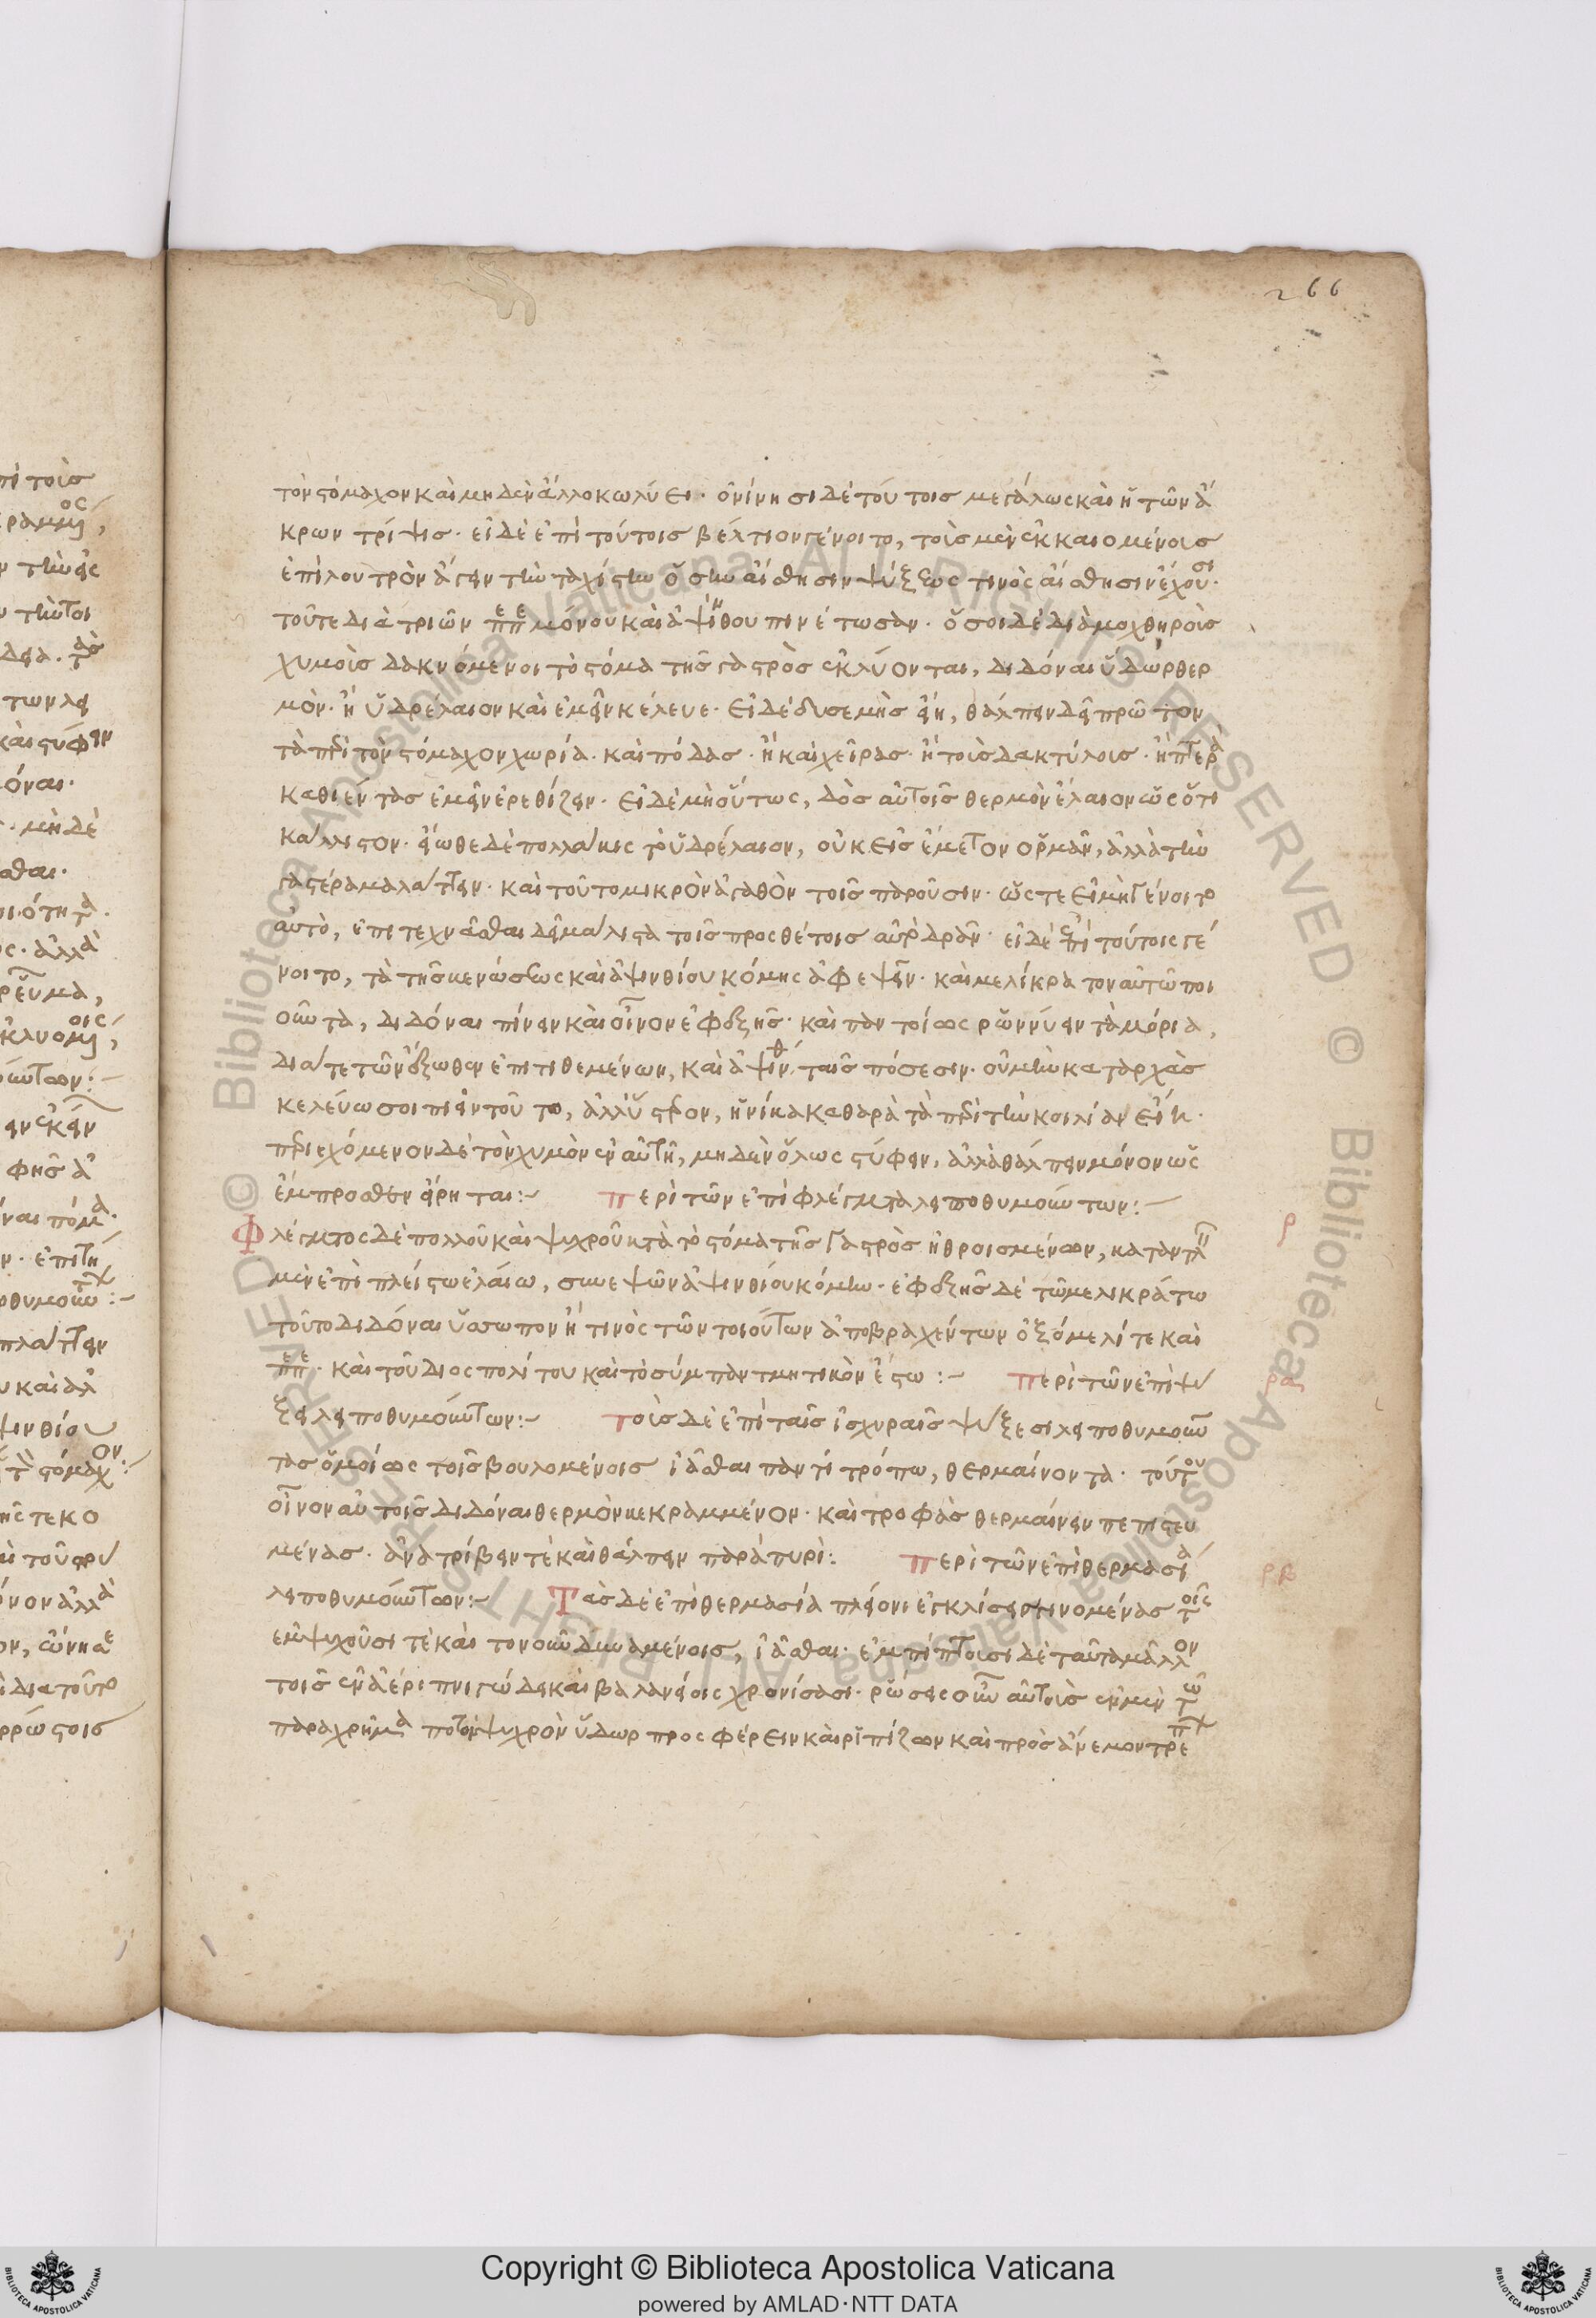 266
τὸν στόμαχον καὶ μηδὲν ἄλλο κωλύει· ὀνίνησι δὲ τούτοις μεγάλως καὶ ἡ τῶν ἄ
κρων τρίψις· εἰ δὲ ἐπὶ τούτοις βέλτιον γένοιτο, τοὺς μὲν ἐκκαιομένους
ἐπὶ λουτρὸν ἄγειν τὴν ταχίστην αἴσθησιν ψύξεως τινὸς αἴσθησιν ἔχουσι·
τοῦτε διὰ τριῶν πεπε μόνου καὶ ἀψινθου πινέτωσαν· ὅσοι δὲ διὰ μοχθηροὺς
χυμοὺς δακνόμενοι τὸ στόμα τῆς γαστρὸς ἐκλύονται, διδόναι ὕδωρ θερ
μὸν· ἢ ὑδρέλαιον καὶ ἐμεῖν κέλευε· εἰ δὲ δυσεμὴς εἴη, θάλπειν δεῖ πρῶτον
τὰ περὶ τὸν στόμαχον χωρία· καὶ πόδας· ἢ καὶ χεῖρας· ἢ τοὺς δακτύλους· ἢ πτερὰ
καθιέντας ἐμεῖν ἐρεθίζειν· εἰ δὲ μὴ οὕτως, δὸς αὐτοῖς θερμὸν ἔλαιον ὡς ὅτι
κάλλιστον· εἴωθε δὲ πολλάκις τὸ ὑδρέλαιον, οὐκ εἰς ἔμετον ὁρμᾶν, ἀλλὰ τὴν
γαστέρα μαλάττειν· καὶ τοῦτο μικρὸν ἀγαθὸν τοῖς παροῦσιν· ὥστε εἰ μὴ γένοιτο
αὐτὸ, ἐπιτεχνᾶσθαι δεῖ μάλιστα τοῖς προσθέτοις αὐτὸ δρᾶν· εἰ δὲ ἐπὶ τούτοις γέ
νοιτο, τὰ τῆς κενώσεως καὶ ἀψινθίου κόμης ἀφεψεῖν· καὶ μελίκρατον αὐτῶ ποι
οῦντα, διδόναι πίνειν καὶ οἶνον ἐφεξῆς· καὶ παντοίως ῥωννύειν τὰ μόρια,
διά τε τῶν ἔξωθεν ἐπιτιθεμένων, καὶ ἀψινθ ταῖς πόσεσιν· οὐ μὴν κατ αρχὰς
κελεύω σοι πιεῖν τοῦτο, ἀλλ ὕστερον, ἡνίκα καθαρὰ τὰ περὶ τὴν κοιλίαν εἴη·
περιεχόμενον δὲ τὸν χυμὸν ἐν αὐτῆ, μηδὲν ὅλως στύφειν, ἀλλὰ θάλπειν μόνον ὡς
ἔμπροσθεν εἴρηται:– Περὶ τῶν ἐπὶ φλέγματα λειποθυμούντων:–
Φλέγματος δὲ πολλοῦ καὶ ψυχροῦ κατὰ τὸ στόμα τῆς γαστρὸς ἠθροισμένων, καταντλεῖν
μὲν ἐπὶ πλείστω ἐλαίω, συνεψῶν ἀψινθίου κόμην· ἐφεξῆς δὲ τῶ μελικράτω
τοῦτο διδόναι ὕσσωπον ἤ τινὸς τῶν τοιούτων ἀποβραχέντων ὀξόμελί τε καὶ
πεπε· καὶ τοῦ διοσπολίτου καὶ τὸ σύμπαν τμητικὸν ἔστω:– Περὶ τῶν ἐπὶ ψύ
ξει λειποθυμούντων:– Τοὺς δὲ ἐπὶ ταῖς ἰσχυραῖς ψύξεσι λειποθυμοῦν
τας ὁμοίως τοῖς βουλομένοις ἰᾶσθαι παντὶ τρόπω, θερμαίνοντα· τούτου
οἶνον αὐτοῖς διδόναι θερμὸν κεκραμμένον· καὶ τροφὰς θερμαίνειν πεπιστευ
μένας· ἀνατρίβειν τὲ καὶ θάλπειν παρὰ πυρὶ: Περὶ τῶν ἐπὶ θερμασία
λειποθυμούντων:– Τὰς δὲ ἐπὶ θερμασία πλείονι ἐγκλίσεις γινομένας τοῖς
ἐμψυχοῦσι τὲ καὶ τονοῦν δυναμένοις, ἰᾶσθαι· ἐμπίπτουσι δὲ ταῦτα μᾶλλον
τοῖς ἐν ἀέρι πνιγώδει καὶ βαλανείοις χρονίσασι· ῥώσεις οὖν αὐτοὺς ἐν μὲν τῶ
παραχρῆμα ποτὸν ψυχρὸν ὕδωρ προσφέρειν καὶ ῥιπίζων καὶ πρὸς ἄνεμον τρέπειν
ρ
ρα
ρβ
Copyright © Biblioteca Apostolica Vaticana
powered by AMLAD·NTT DATA